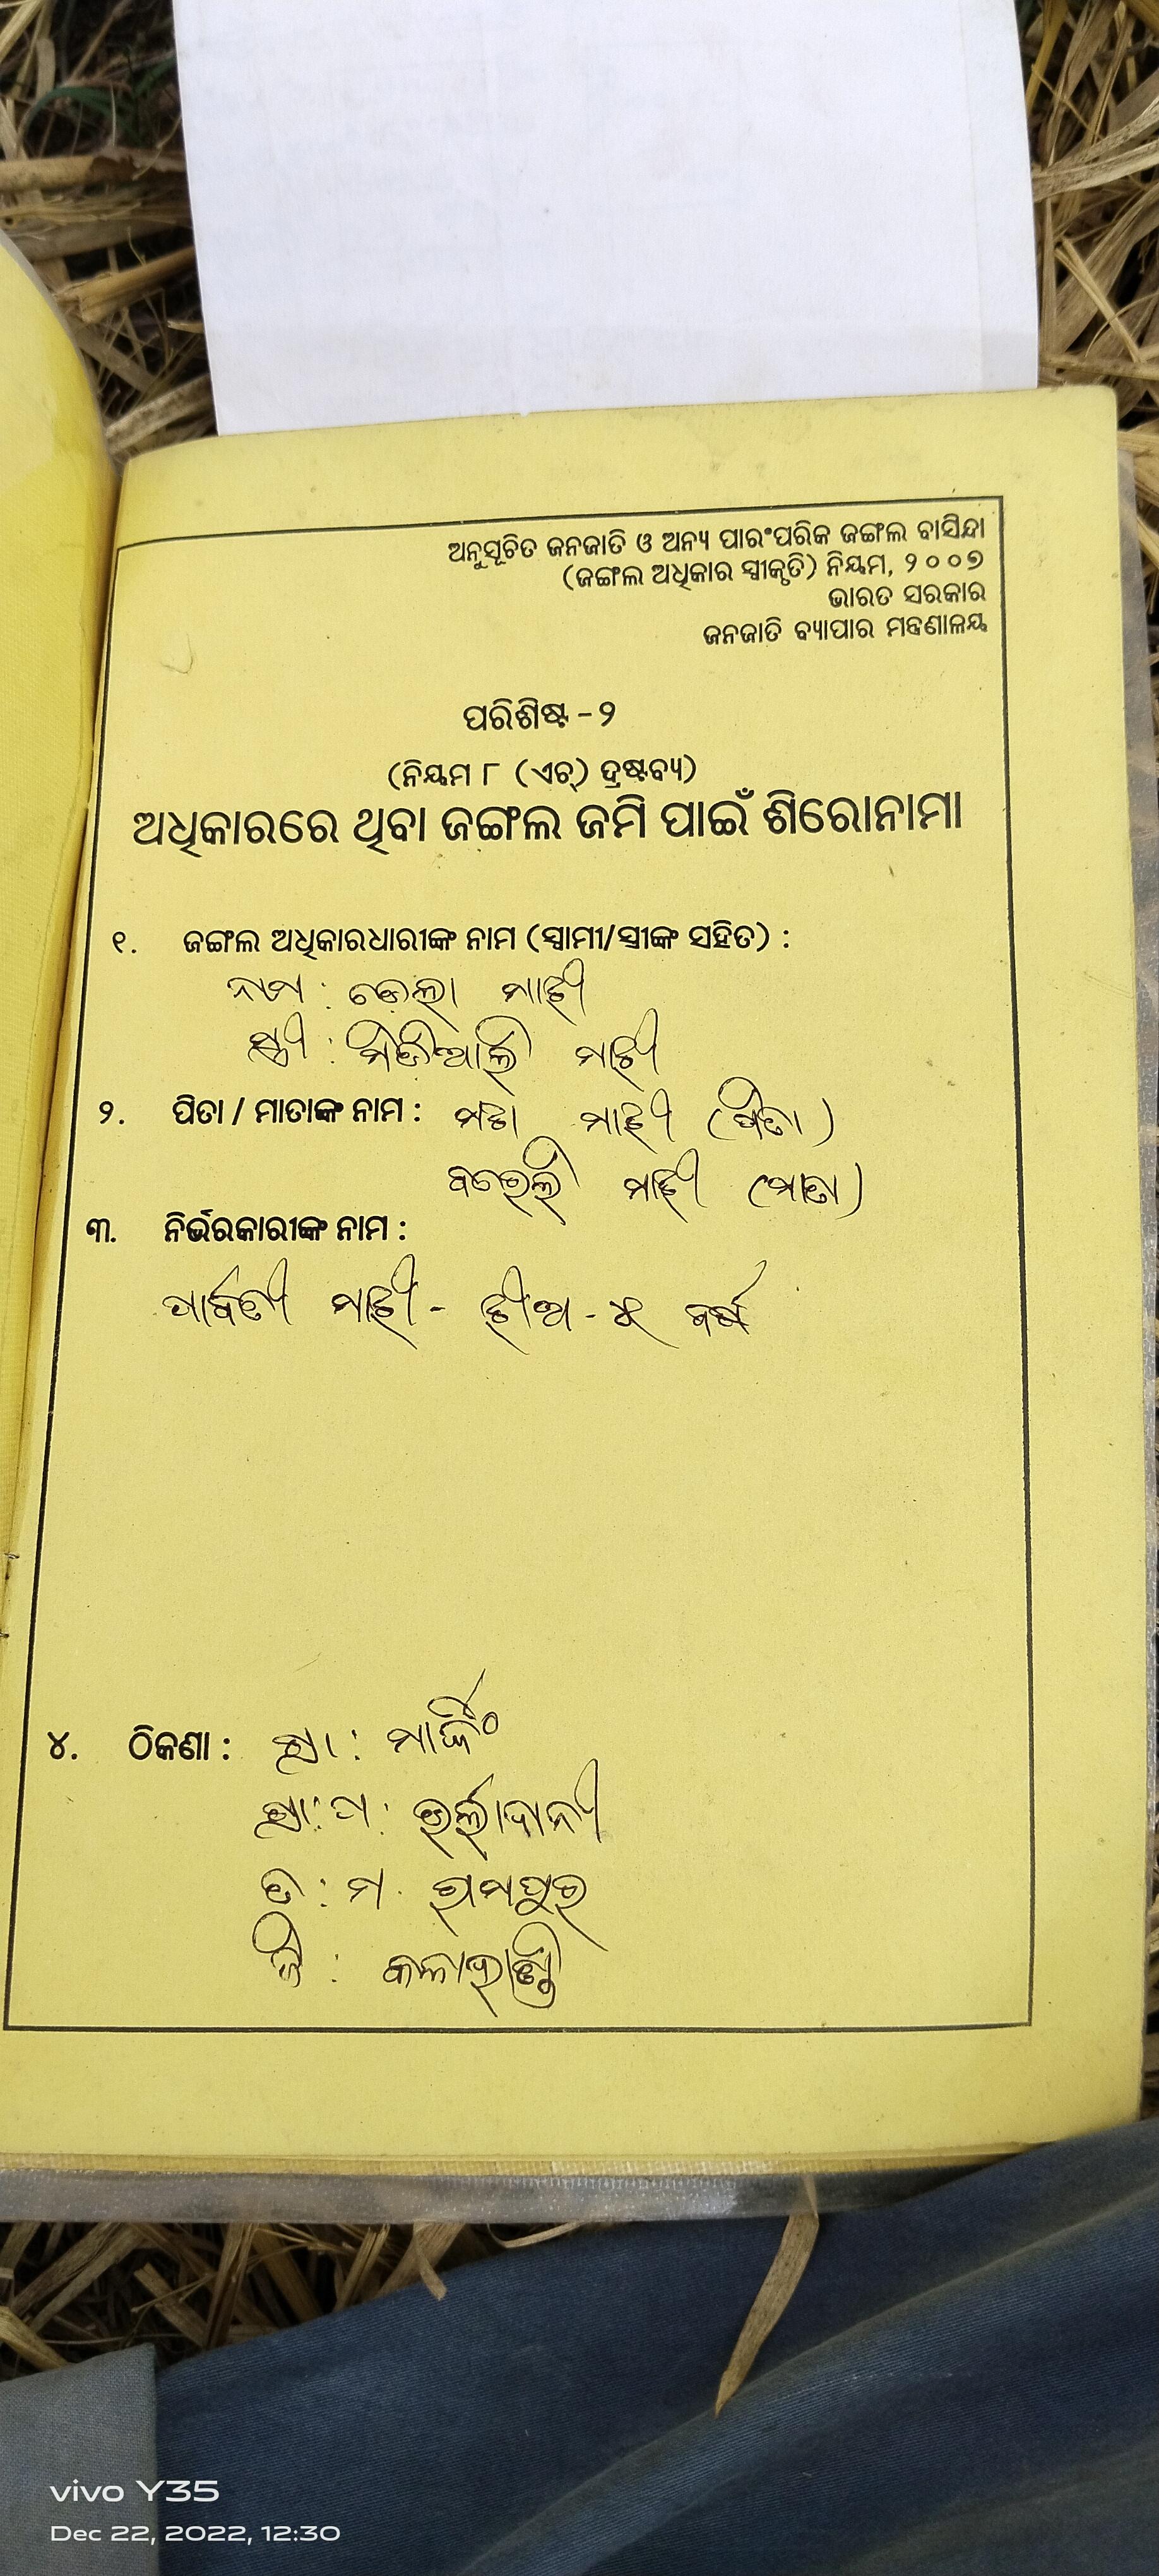 ଅନୁସୂଚିତ ଜନଜାତି ଓ ଅନ୍ୟ ପାରଂପରିକ ଜଙ୍ଗଲ ବାସିନ୍ଦା
(ଜଙ୍ଗଲ ଅଧିକାର ସ୍ୱୀକୃତି) ନିୟମ, ୨୦୦୭
ଭାରତ ସରକାର
ଜନଜାତି ବ୍ୟାପାର ମନ୍ତ୍ରଣାଳୟ
ପରିଶିଷ୍ଟ - ୨
(ନିୟମ ୮ (ଏଚ୍) ଦ୍ରଷ୍ଟବ୍ୟ)
ଅଧିକାରରେ ଥିବା ଜଙ୍ଗଲ ଜମି ପାଇଁ ଶିରୋନାମା
୧. ଜଙ୍ଗଲ ଅଧିକାରଧାରୀଙ୍କ ନାମ (ସ୍ୱାମୀ/ସ୍ତ୍ରୀଙ୍କ ସହିତ) :
ନାମ : ମାଝୀ
ସ୍ତ୍ରୀ : ମାଝୀ
୨. ପିତା / ମାତାଙ୍କ ନାମ : ମାଝୀ (ପିତା)
ମାଝୀ (ମାତା)
୩. ନିର୍ଭରକାରୀଙ୍କ ନାମ :
ପାର୍ବତୀ ମାଝୀ - ଝୀଅ - ୪ ବର୍ଷ
୪. ଠିକଣା : ଗ୍ରା :
ଗ୍ରା: ପ: ଉର୍ଲାଦାନୀ
ତ : ମ. ରାମପୁର
ଜି : କଳାହାଣ୍ଡି
vivo Y35
Dec 22, 2022, 12:30